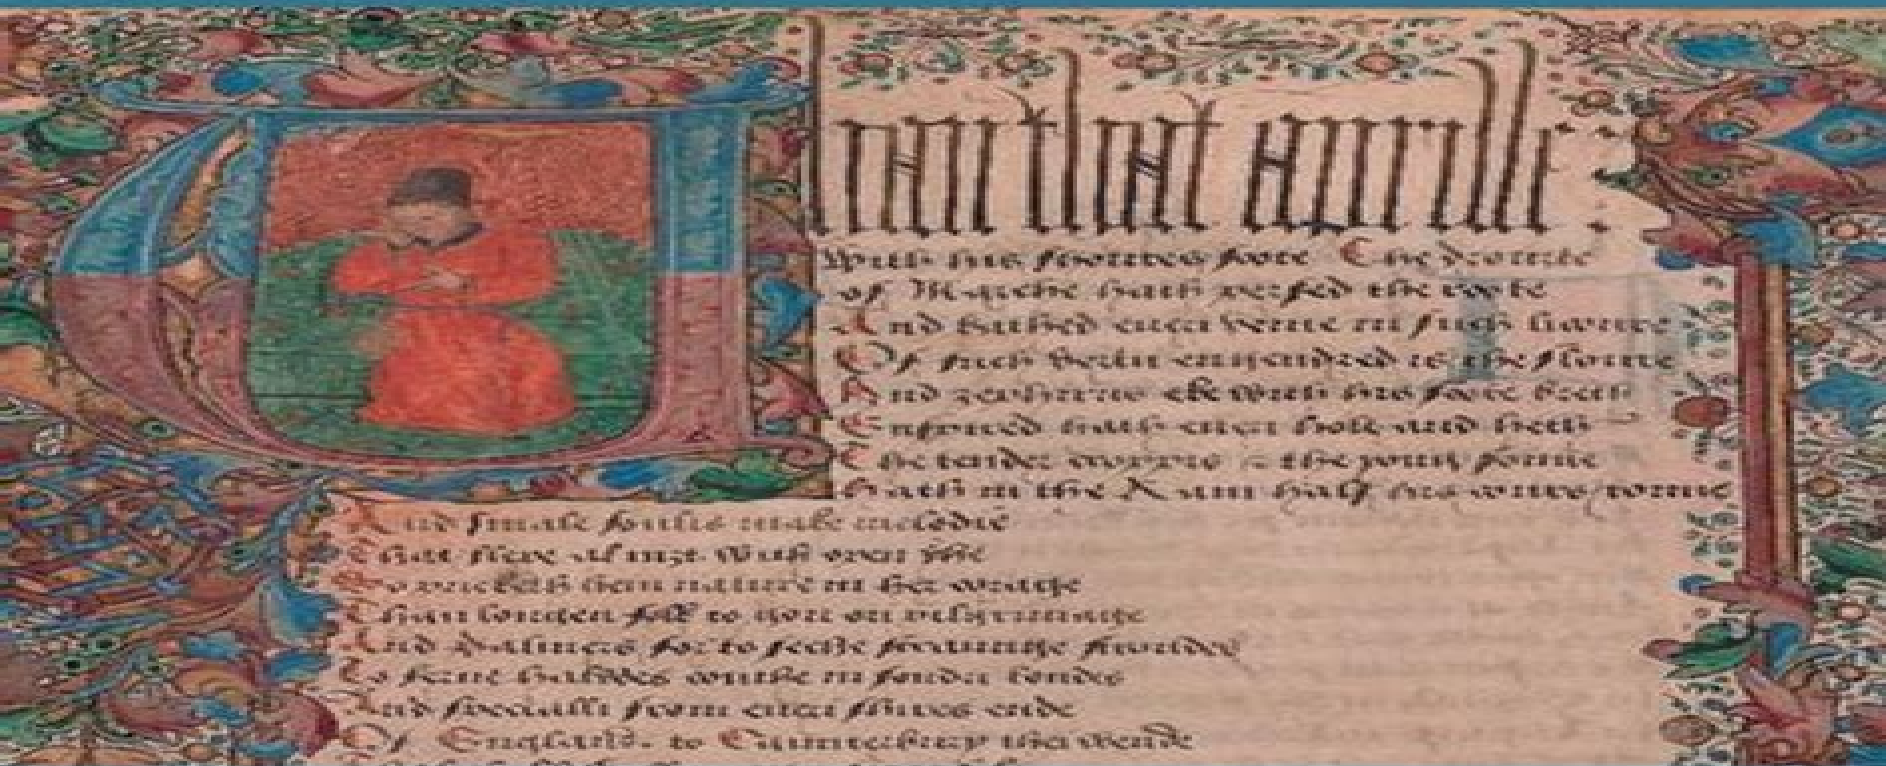 Whan that aprille
With his shoures soote The drouute
of Marche hath perced the roote
And bathed euery veine in such licoure
Of such vertu engendred is the floure
And zephirus eke with his soote breth
Enspired hath euery holt and heth
The tender croppis the yong sonne
hath in the Ram half his cours ronne
And smale foulis make melodie
That slepe al nizt with open yhe
So pricketh hem nature in her corage
Than longen folk to gon on pilgrimage
And Palmers for to seche straunge strondes
To ferne halwes couthe in sondri londes
And specialli from euery shires ende
Of Englond to Caunterbury thei wende